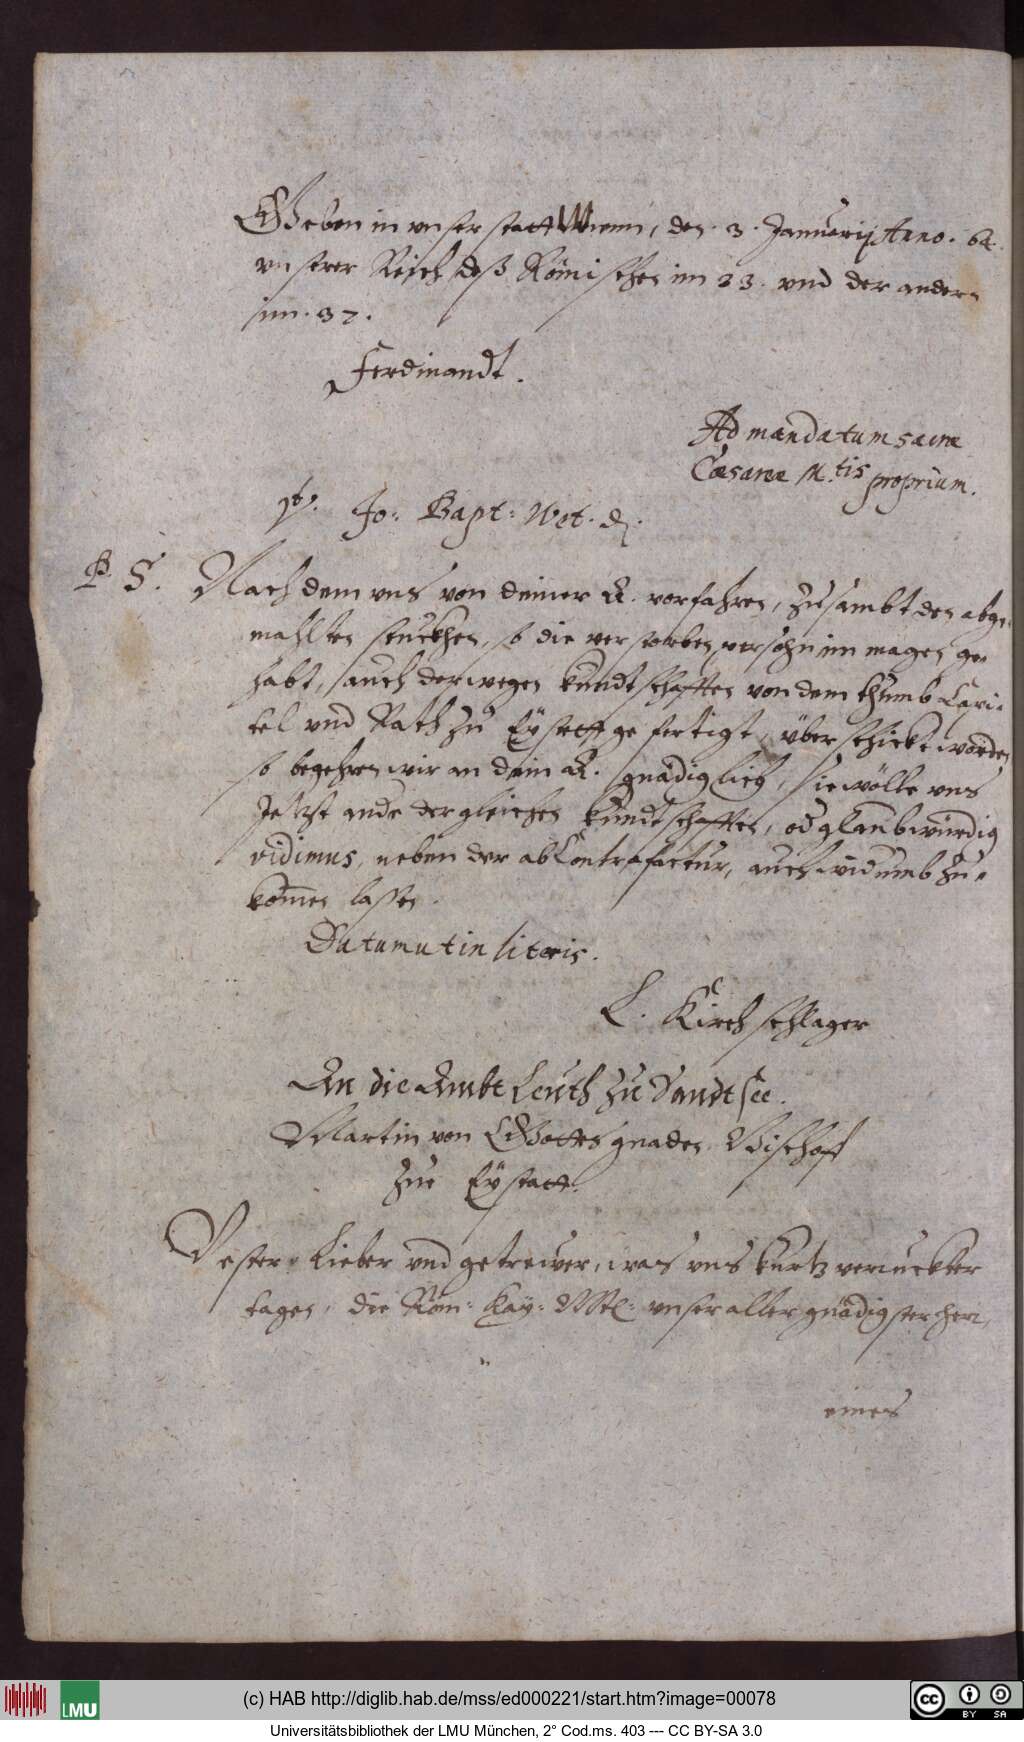 Geben in unser statt Wienn, den. 3. Januarij Anno. 64.
unserer Reich deß Römischen im 33. und der andern
im. 37.
Ferdinandt.
Ad mandatum sacræ
Cæsareæ M.tis proprium.
vt. Jo: Bapt: Web. D.
P. S. Nachdem uns von deiner A. vorfahren, zusambt den abge=
mahlten stuckhen, so die verstorben persohn im magen ge=
habt, auch derwegen kundtschafften von dem thumb Capi=
tel und Rath zu Eystett gefertigt, überschickt worden
so begehren wir an dein A. gnädiglich, sie wölle uns
Jetzt ande dergleichen kundtschafften, od glaubwürdig
vidimus, neben der abContrafactur, auch widumb zu=
komen lassen.
Datum ut in literis.
L. Kirchschlager
An die Ambt Leuth zu Sandtsee.
Martin von Gottes gnaden Bischoff
Zue Eystatt.
Vester Lieber und getrewer, was uns kurtz verruckter
tagen, die Röm: Kay: Mtt: unser aller gnädigster herr,
eines
(c) HAB http://diglib.hab.de/mss/ed000221/start.htm?image=00078
LMU
cc BY SA
Universitätsbibliothek der LMU München, 2° Cod.ms. 403 --- CC BY-SA 3.0